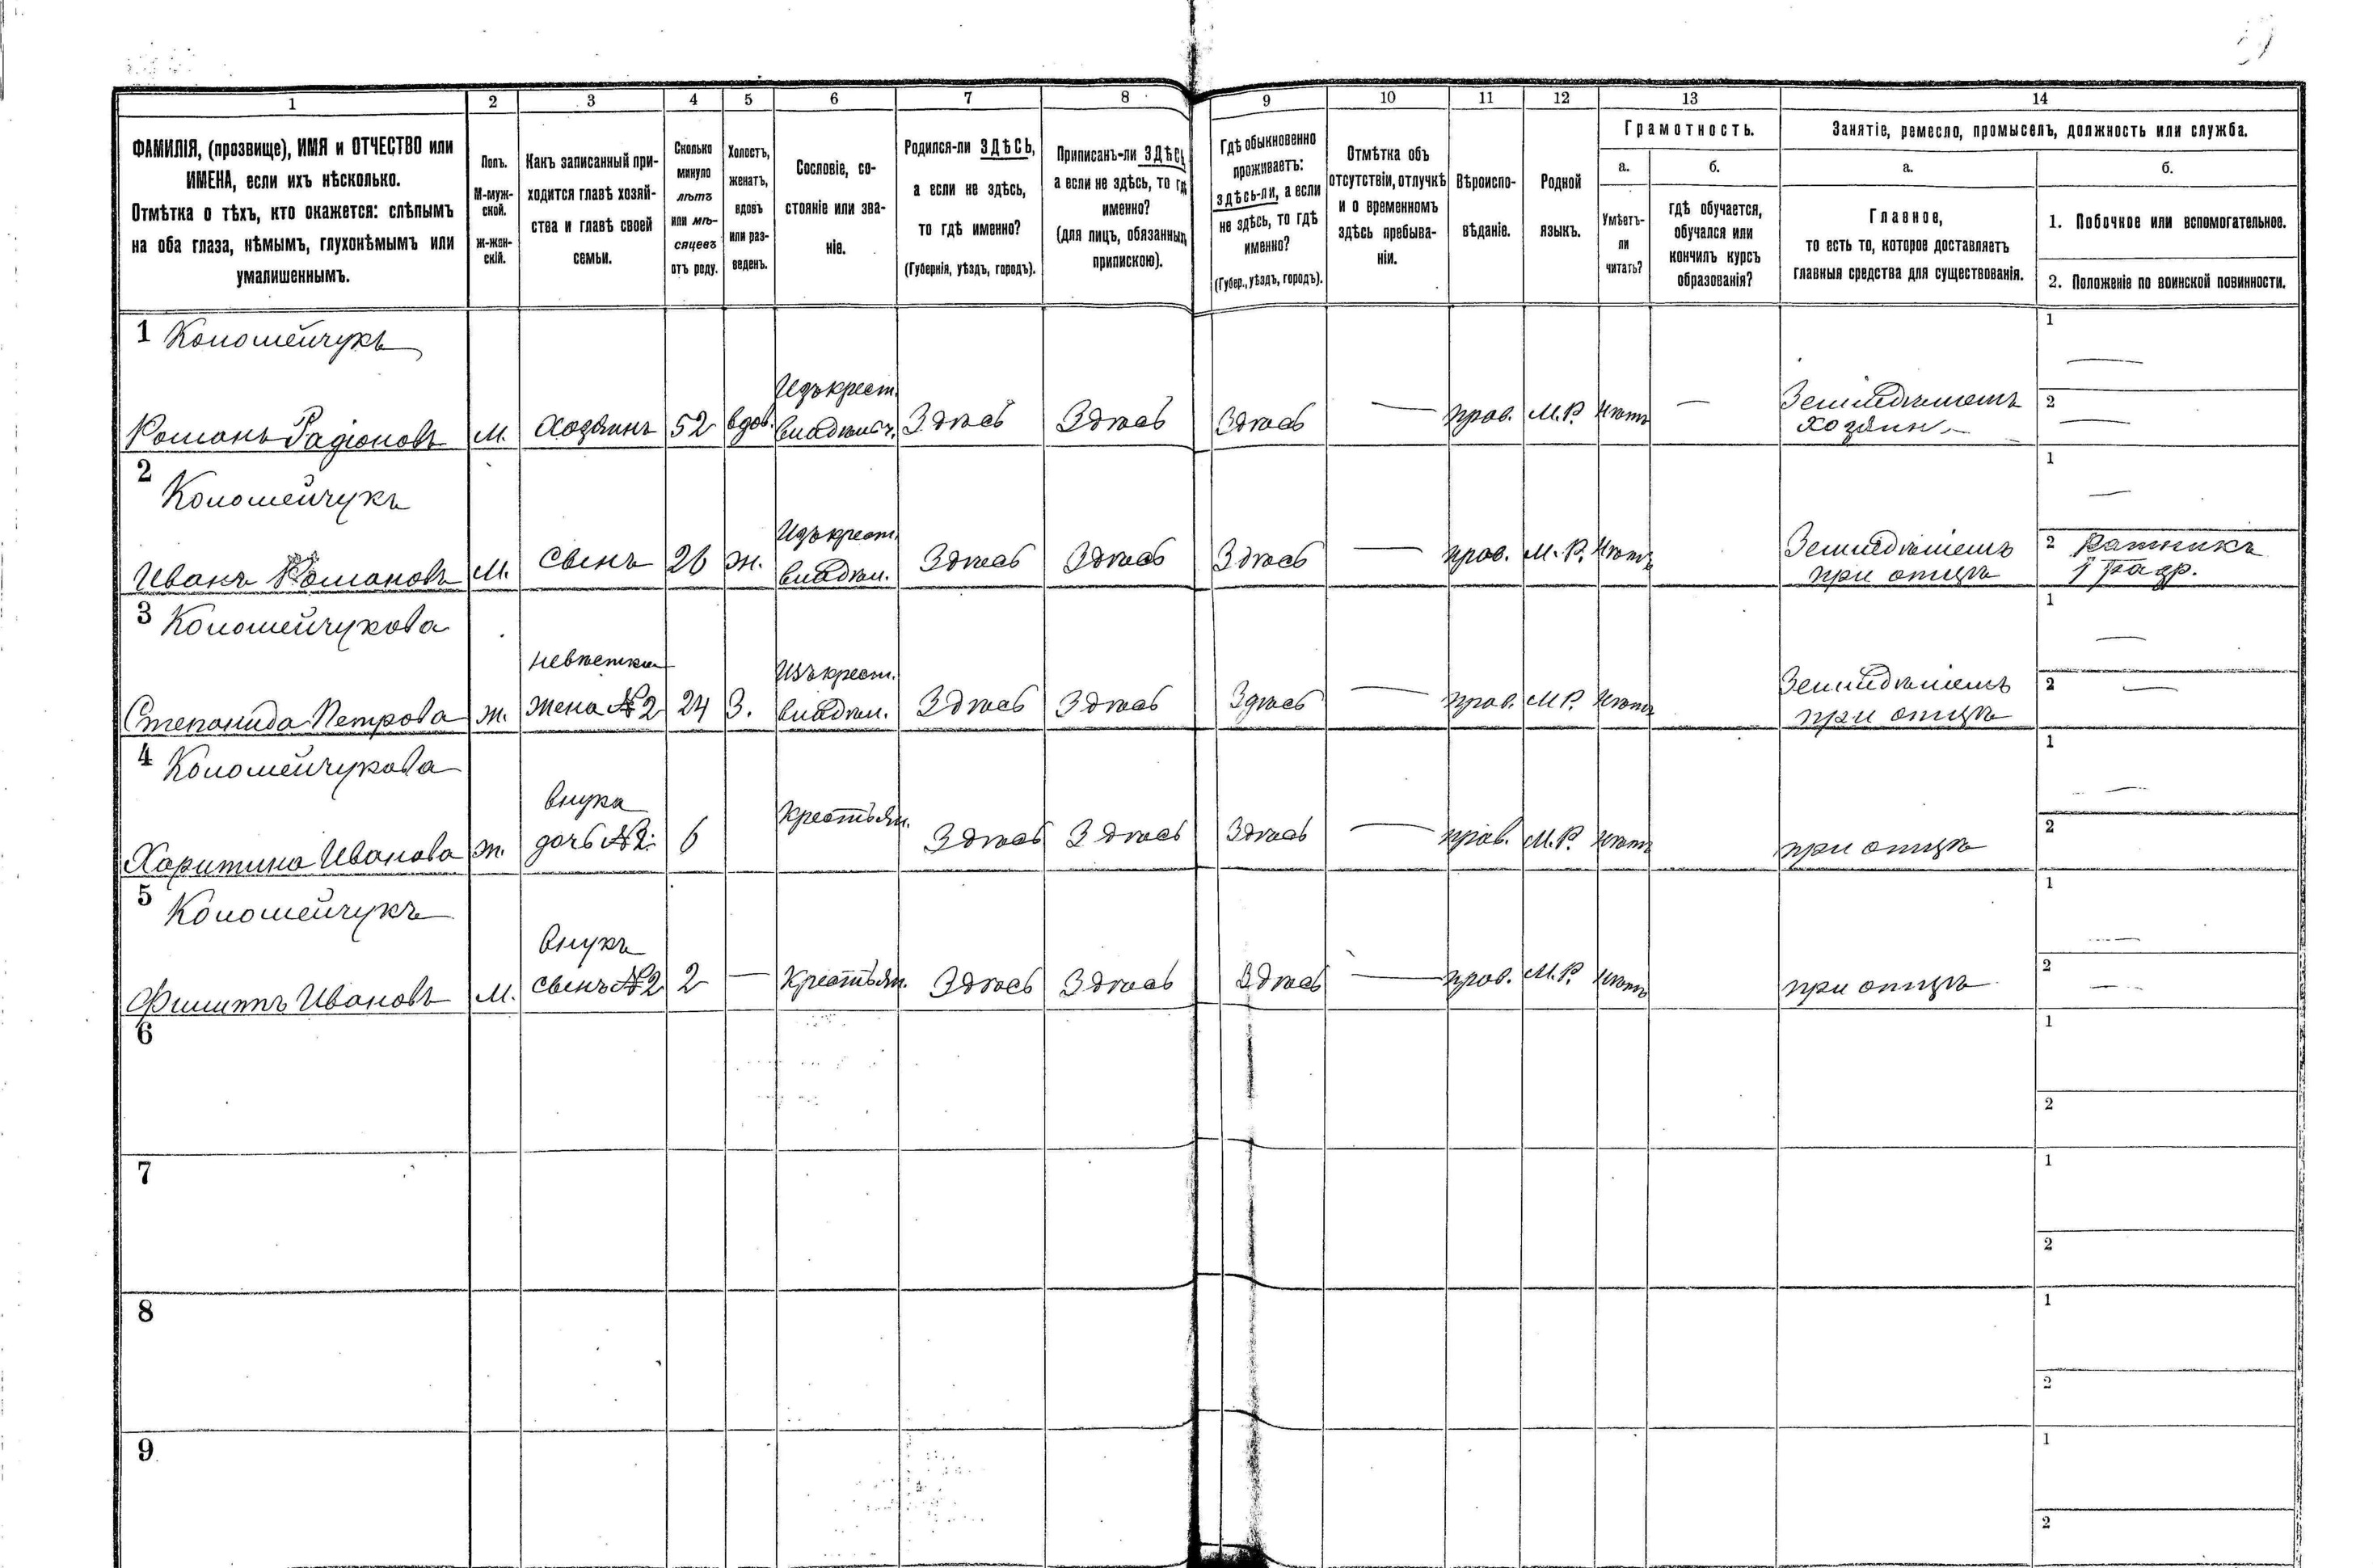 1 2 3 4 5 6 7 8 9 10 11 12 13 14
ФАМИЛІЯ, (прозвище), ИМЯ и ОТЧЕСТВО или
ИМЕНА, если ихъ нѣсколько.
Отмѣтка о тѣхъ, кто окажется: слѣпымъ
на оба глаза, нѣмымъ, глухонѣмымъ или
умалишеннымъ.
Полъ.
М-муж-
ской.
ж-жен-
скій.
Какъ записанный при-
ходится главѣ хозяй-
ства и главѣ своей
семьи.
Сколько
минуло
лѣтъ
или мѣ-
сяцевъ
отъ роду.
Холостъ,
женатъ,
вдовъ
или раз-
веденъ.
Сословіе, со-
стояніе или зва-
ніе.
Родился-ли ЗДѢСЬ,
а если не здѣсь,
то гдѣ именно?
(Губернія, уѣздъ, городъ).
Приписанъ-ли ЗДѢСЬ,
а если не здѣсь, то гдѣ
именно?
(для лицъ, обязанныхъ
припискою).
Гдѣ обыкновенно
проживаетъ:
здѣсь-ли, а если
не здѣсь, то гдѣ
именно?
(Губер., уѣздъ, городъ).
Отмѣтка объ
отсутствіи, отлучкѣ
и о временномъ
здѣсь пребыва-
ніи.
Вѣроиспо-
вѣданіе.
Родной
языкъ.
Грамотность.
а.
Умѣетъ-
ли
читать?
б.
гдѣ обучается,
обучался или
кончилъ курсъ
образованія?
Занятіе, ремесло, промыселъ, должность или служба.
а.
Главное,
то есть то, которое доставляетъ
главныя средства для существованія.
б.
1. Побочное или вспомогательное.
2. Положеніе по воинской повинности.
1 Коломейчукъ
Романъ Радіоновъ М. Хозяинъ 52 вдов. Изъ крест. владѣльч. Здѣсь Здѣсь Здѣсь — прав. М.Р. нѣтъ — Земледѣлецъ
Хозяин.
1 —
2 —
2 Коломейчукъ
Иванъ Романовъ М. Сынъ 26 ж. Изъ крест. владѣл. Здѣсь Здѣсь Здѣсь — прав. М.Р. нѣтъ Земледѣлецъ
при отцѣ
1 —
2 Ратникъ
1 разр.
3 Коломейчукова
Степанида Петрова ж. невѣстка
жена №2 24 З. Изъ крест. владѣл. Здѣсь Здѣсь Здѣсь — прав. М.Р. нѣтъ Земледѣлецъ
при отцѣ
1 —
2 —
4 Коломейчукова
Харитина Иванова ж. внука
дочь №2. 6 Крестьян. Здѣсь Здѣсь Здѣсь — прав. М.Р. нѣтъ при отцѣ
1 —
2
5 Коломейчукъ
Филиппъ Ивановъ М. внукъ
сынъ №2 2 — Крестьян. Здѣсь Здѣсь Здѣсь — прав. М.Р. нѣтъ при отцѣ
1 —
2 —
6
1
2
7
1
2
8
1
2
9
1
2